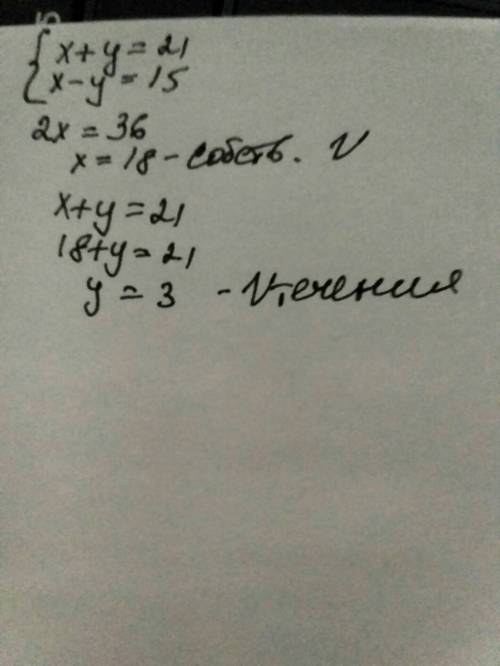 { x+y=21
x-y=15
2x=36
x=18 - собств. V
x+y=21
18+y=21
y=3 - V течения